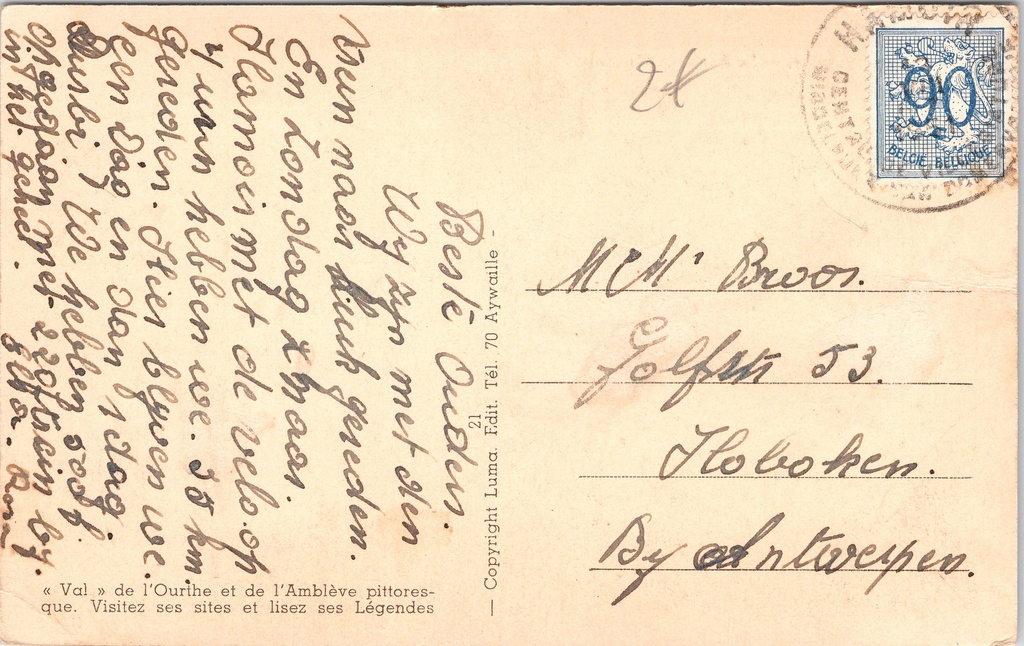 Beste Ouders.
Wy zyn met den
trein naar Luik gereden.
En Zondag z naar
Hamoir met de velo op
4 uur hebben we 35 km.
gereden. Hier blyven we
een dag en dan 1 dag
Durbuy. We hebben 500f
opgedaan met 220f trein by
in het geheel.
« Val » de l'Ourthe et de l'Amblève pittores-
que. Visitez ses sites et lisez ses Légendes
21
— Copyright Luma. Edit. Tél. 70 Aywaille -
2€
HAMOIR
CENTRE
90
BELGIE BELGIQUE
M M' Broos.
Golfstr 53.
Hoboken.
By Antwerpen.